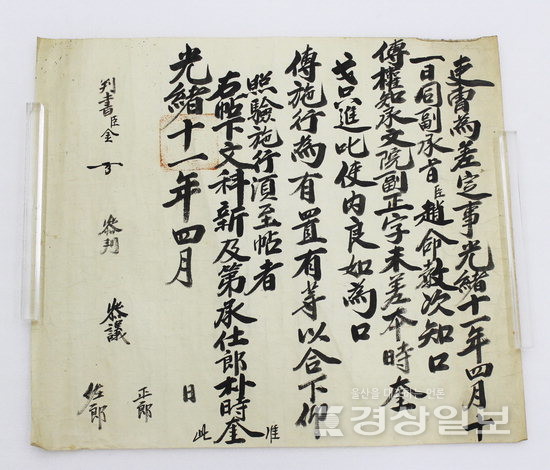 吏曹爲差定事光緖十一年四月十
一日同副承旨臣趙命敎次知口
傳權知承文院副正字未差本時奎
戈只進叱使內良如爲口
傳施行爲有置有等以合下仰
照驗施行須至帖者
右帖下文科新及第承仕郎朴時奎
此 准
光緖十一年四月 日
判書臣金 參判 參議 正郎 佐郎
울산을 대표하는 언론
경상일보